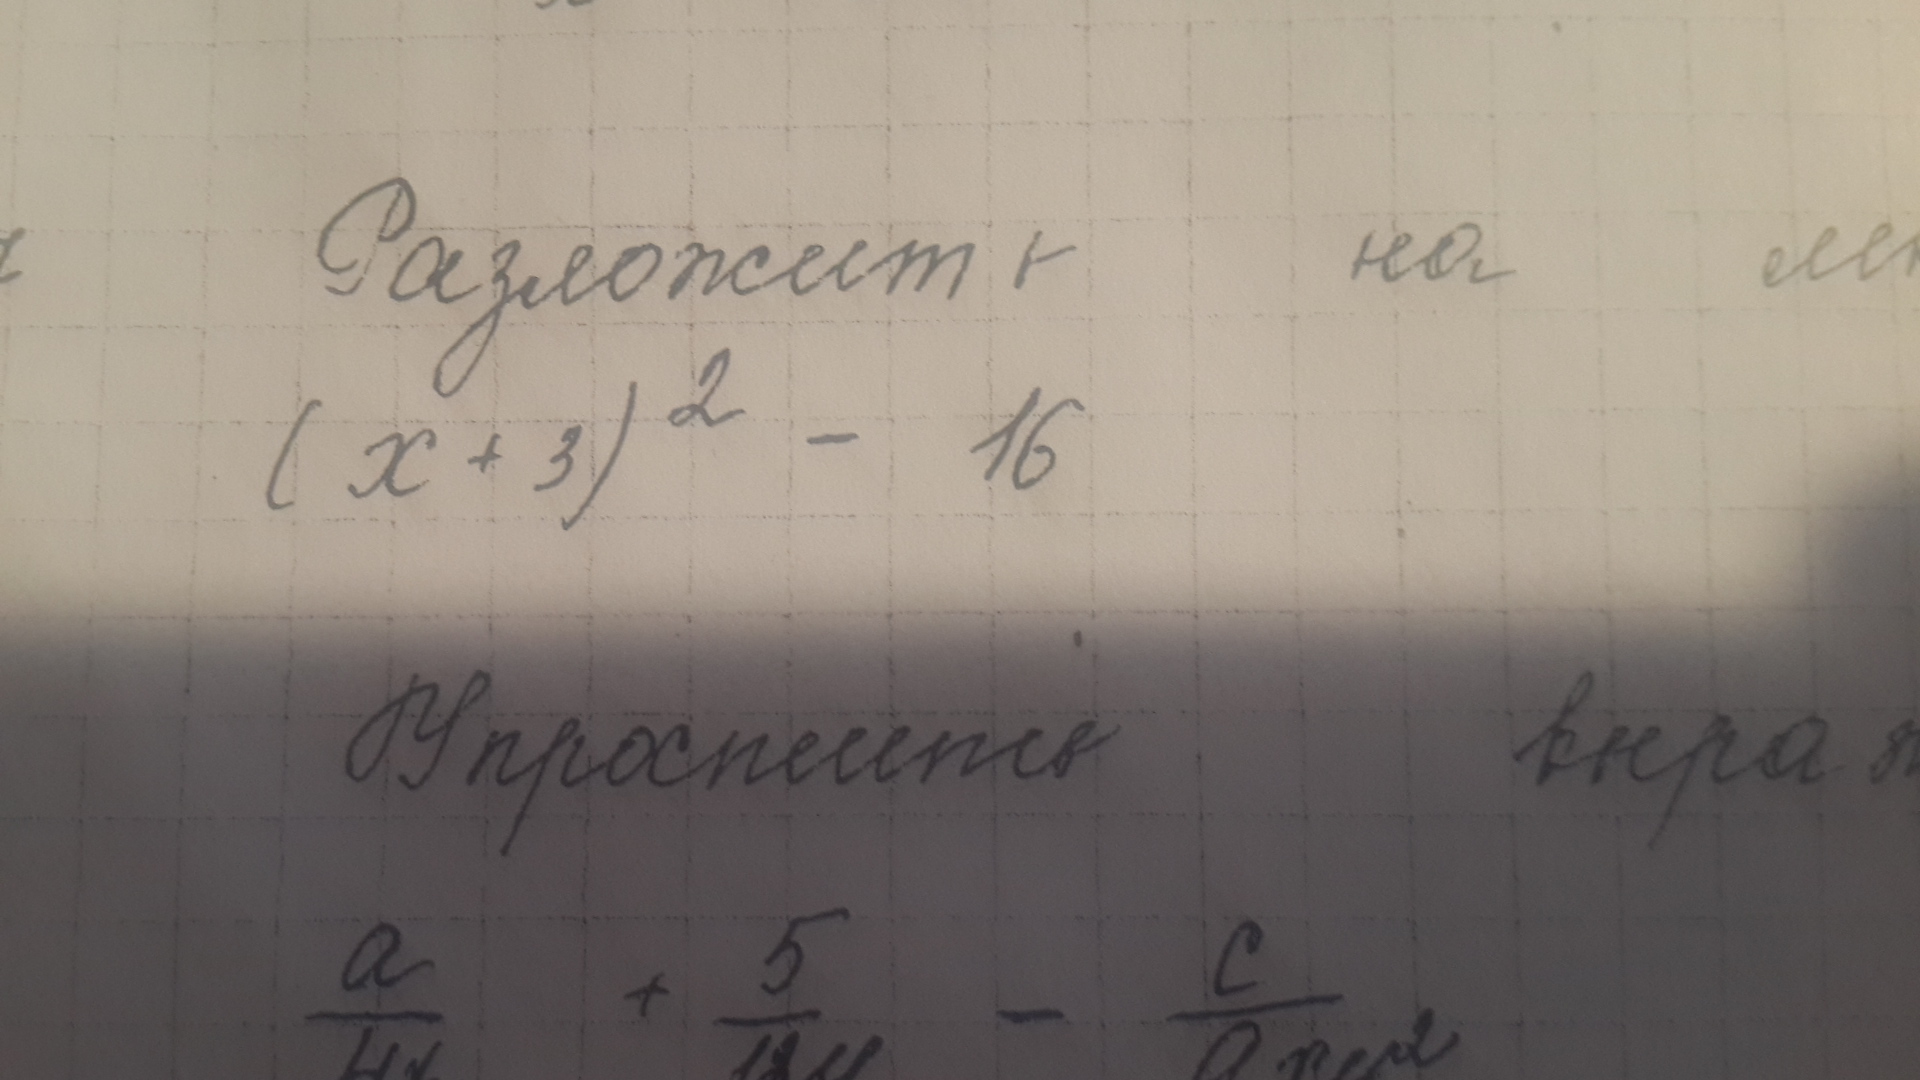 Разложить на мн
(x+3)² - 16
Упростить выраж
a/4x + 5/12y - c/